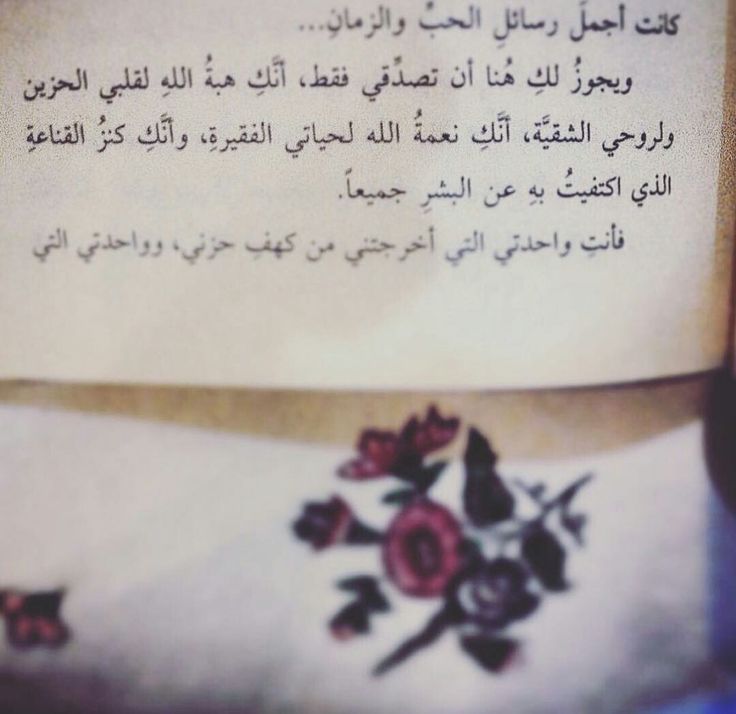 كانت أجملَ رسائلِ الحبِّ والزمانِ...
ويجوزُ لكِ هُنا أن تصدِّقي فقط، أنَّكِ هبةُ اللهِ لقلبي الحزين
ولروحي الشقيَّة، أنَّكِ نعمةُ الله لحياتي الفقيرةِ، وأنَّكِ كنزُ القناعةِ
الذي اكتفيتُ بهِ عن البشرِ جميعاً.
فأنتِ واحدتي التي أخرجتني من كهفِ حزني، وواحدتي التي